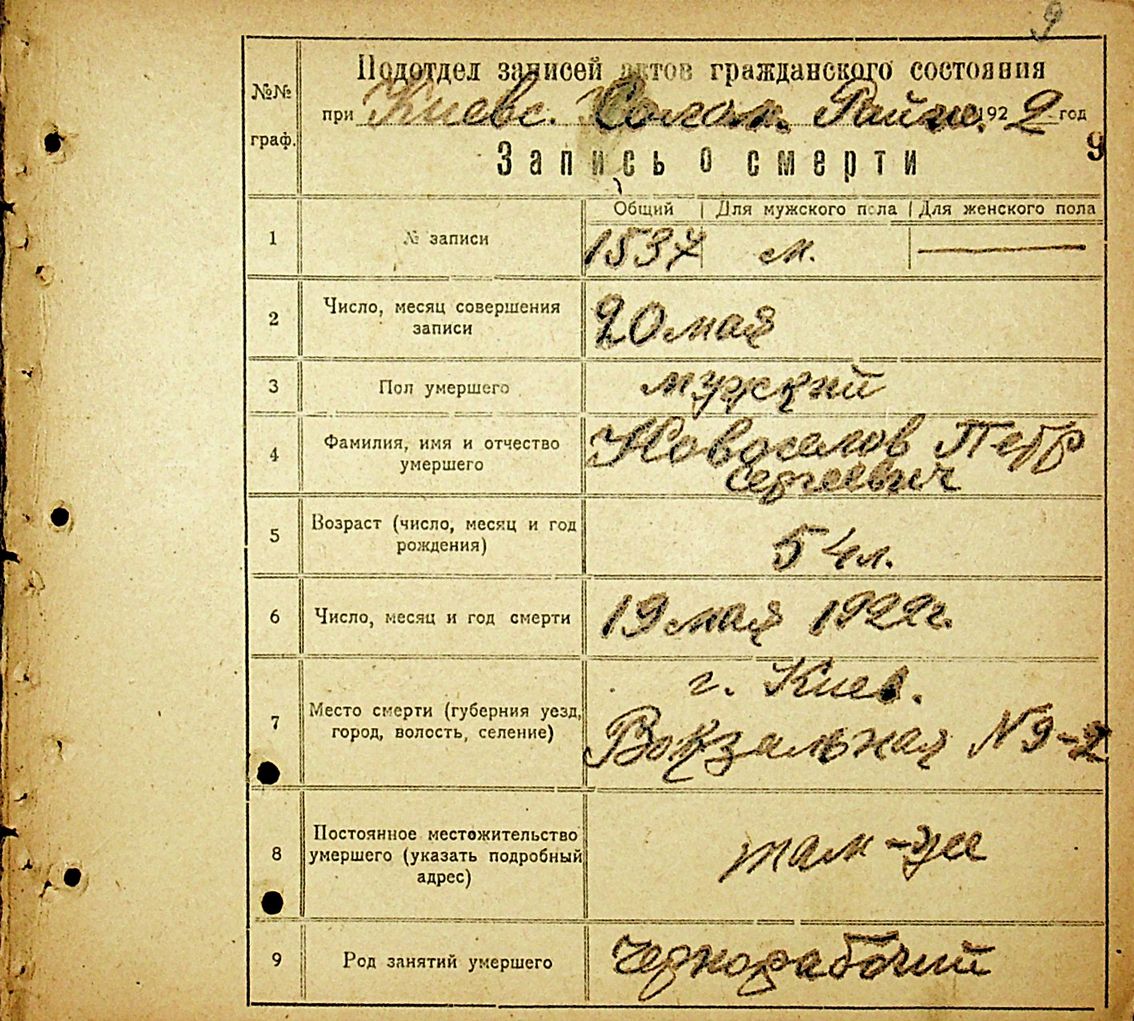 9
№№ граф.
Подотдел записей актов гражданского состояния
при Киевс. Солом. Райис. 1922 год
9
Запись о смерти
Общий | Для мужского пола | Для женского пола
1 № записи 1537 м. —
2 Число, месяц совершения
записи
20 мая
3 Пол умершего мужский
4 Фамилия, имя и отчество
умершего
Новоселов Петр
Сергеевич
5 Возраст (число, месяц и год
рождения)
54 л.
6 Число, месяц и год смерти 19 мая 1922 г.
7 Место смерти (губерния уезд,
город, волость, селение)
г. Киев.
Вокзальная № 9-2
8 Постоянное местожительство
умершего (указать подробный
адрес)
там-же
9 Род занятий умершего чернорабочий